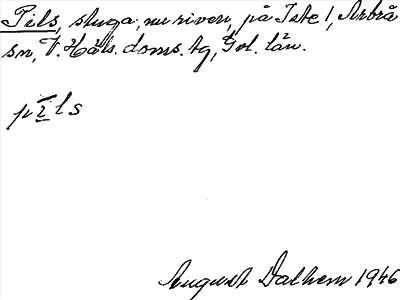 Pils, stuga, nu riven, på Iste 1, Arbrå
sn, V. Häls. doms. tg, Gvl. län.
pīls
August Dalhem 1946